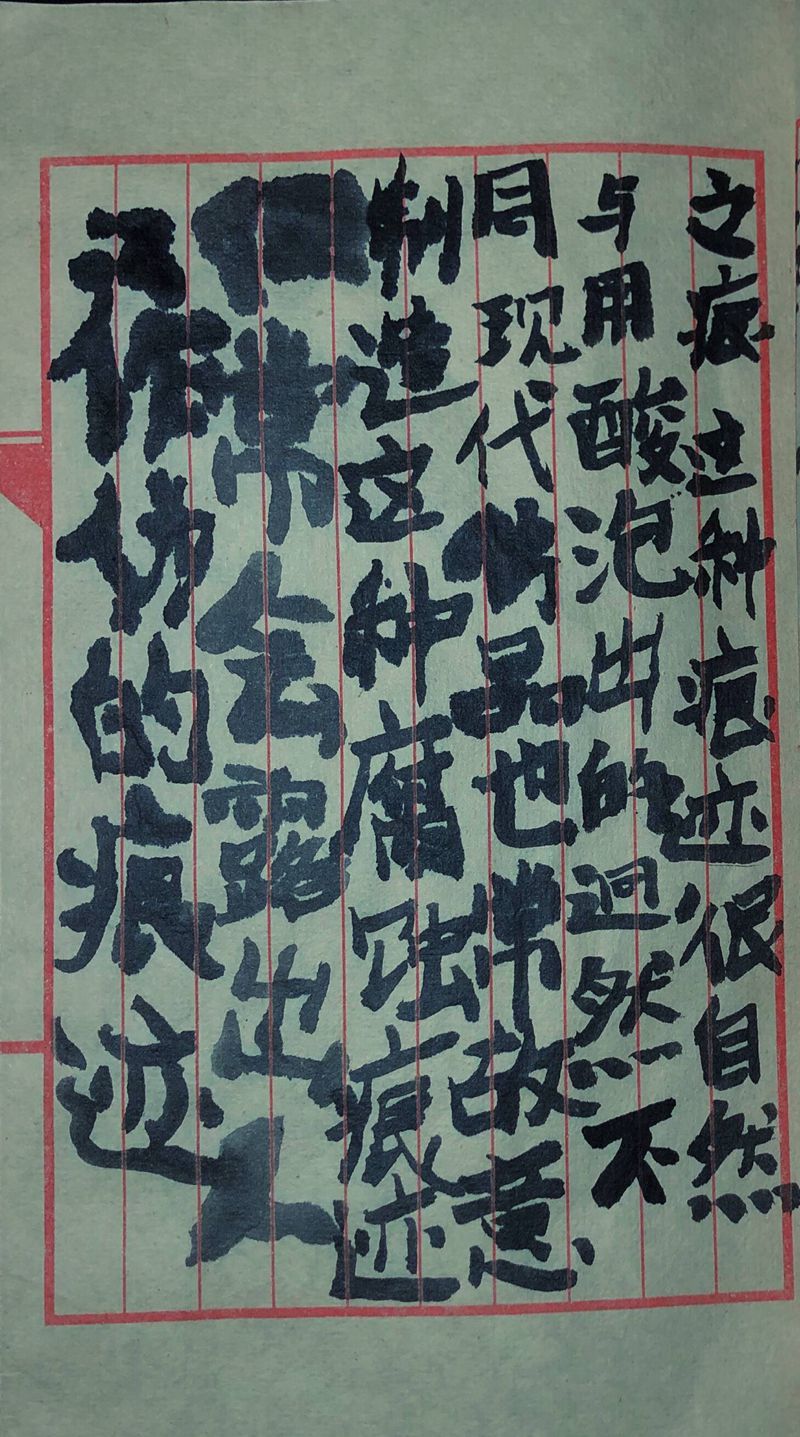 之痕这种痕迹很自然
与用酸泡出的迥然不
同现代仿品也常故意
制造这种腐蚀痕迹
但常会露出人
工作伪的痕迹